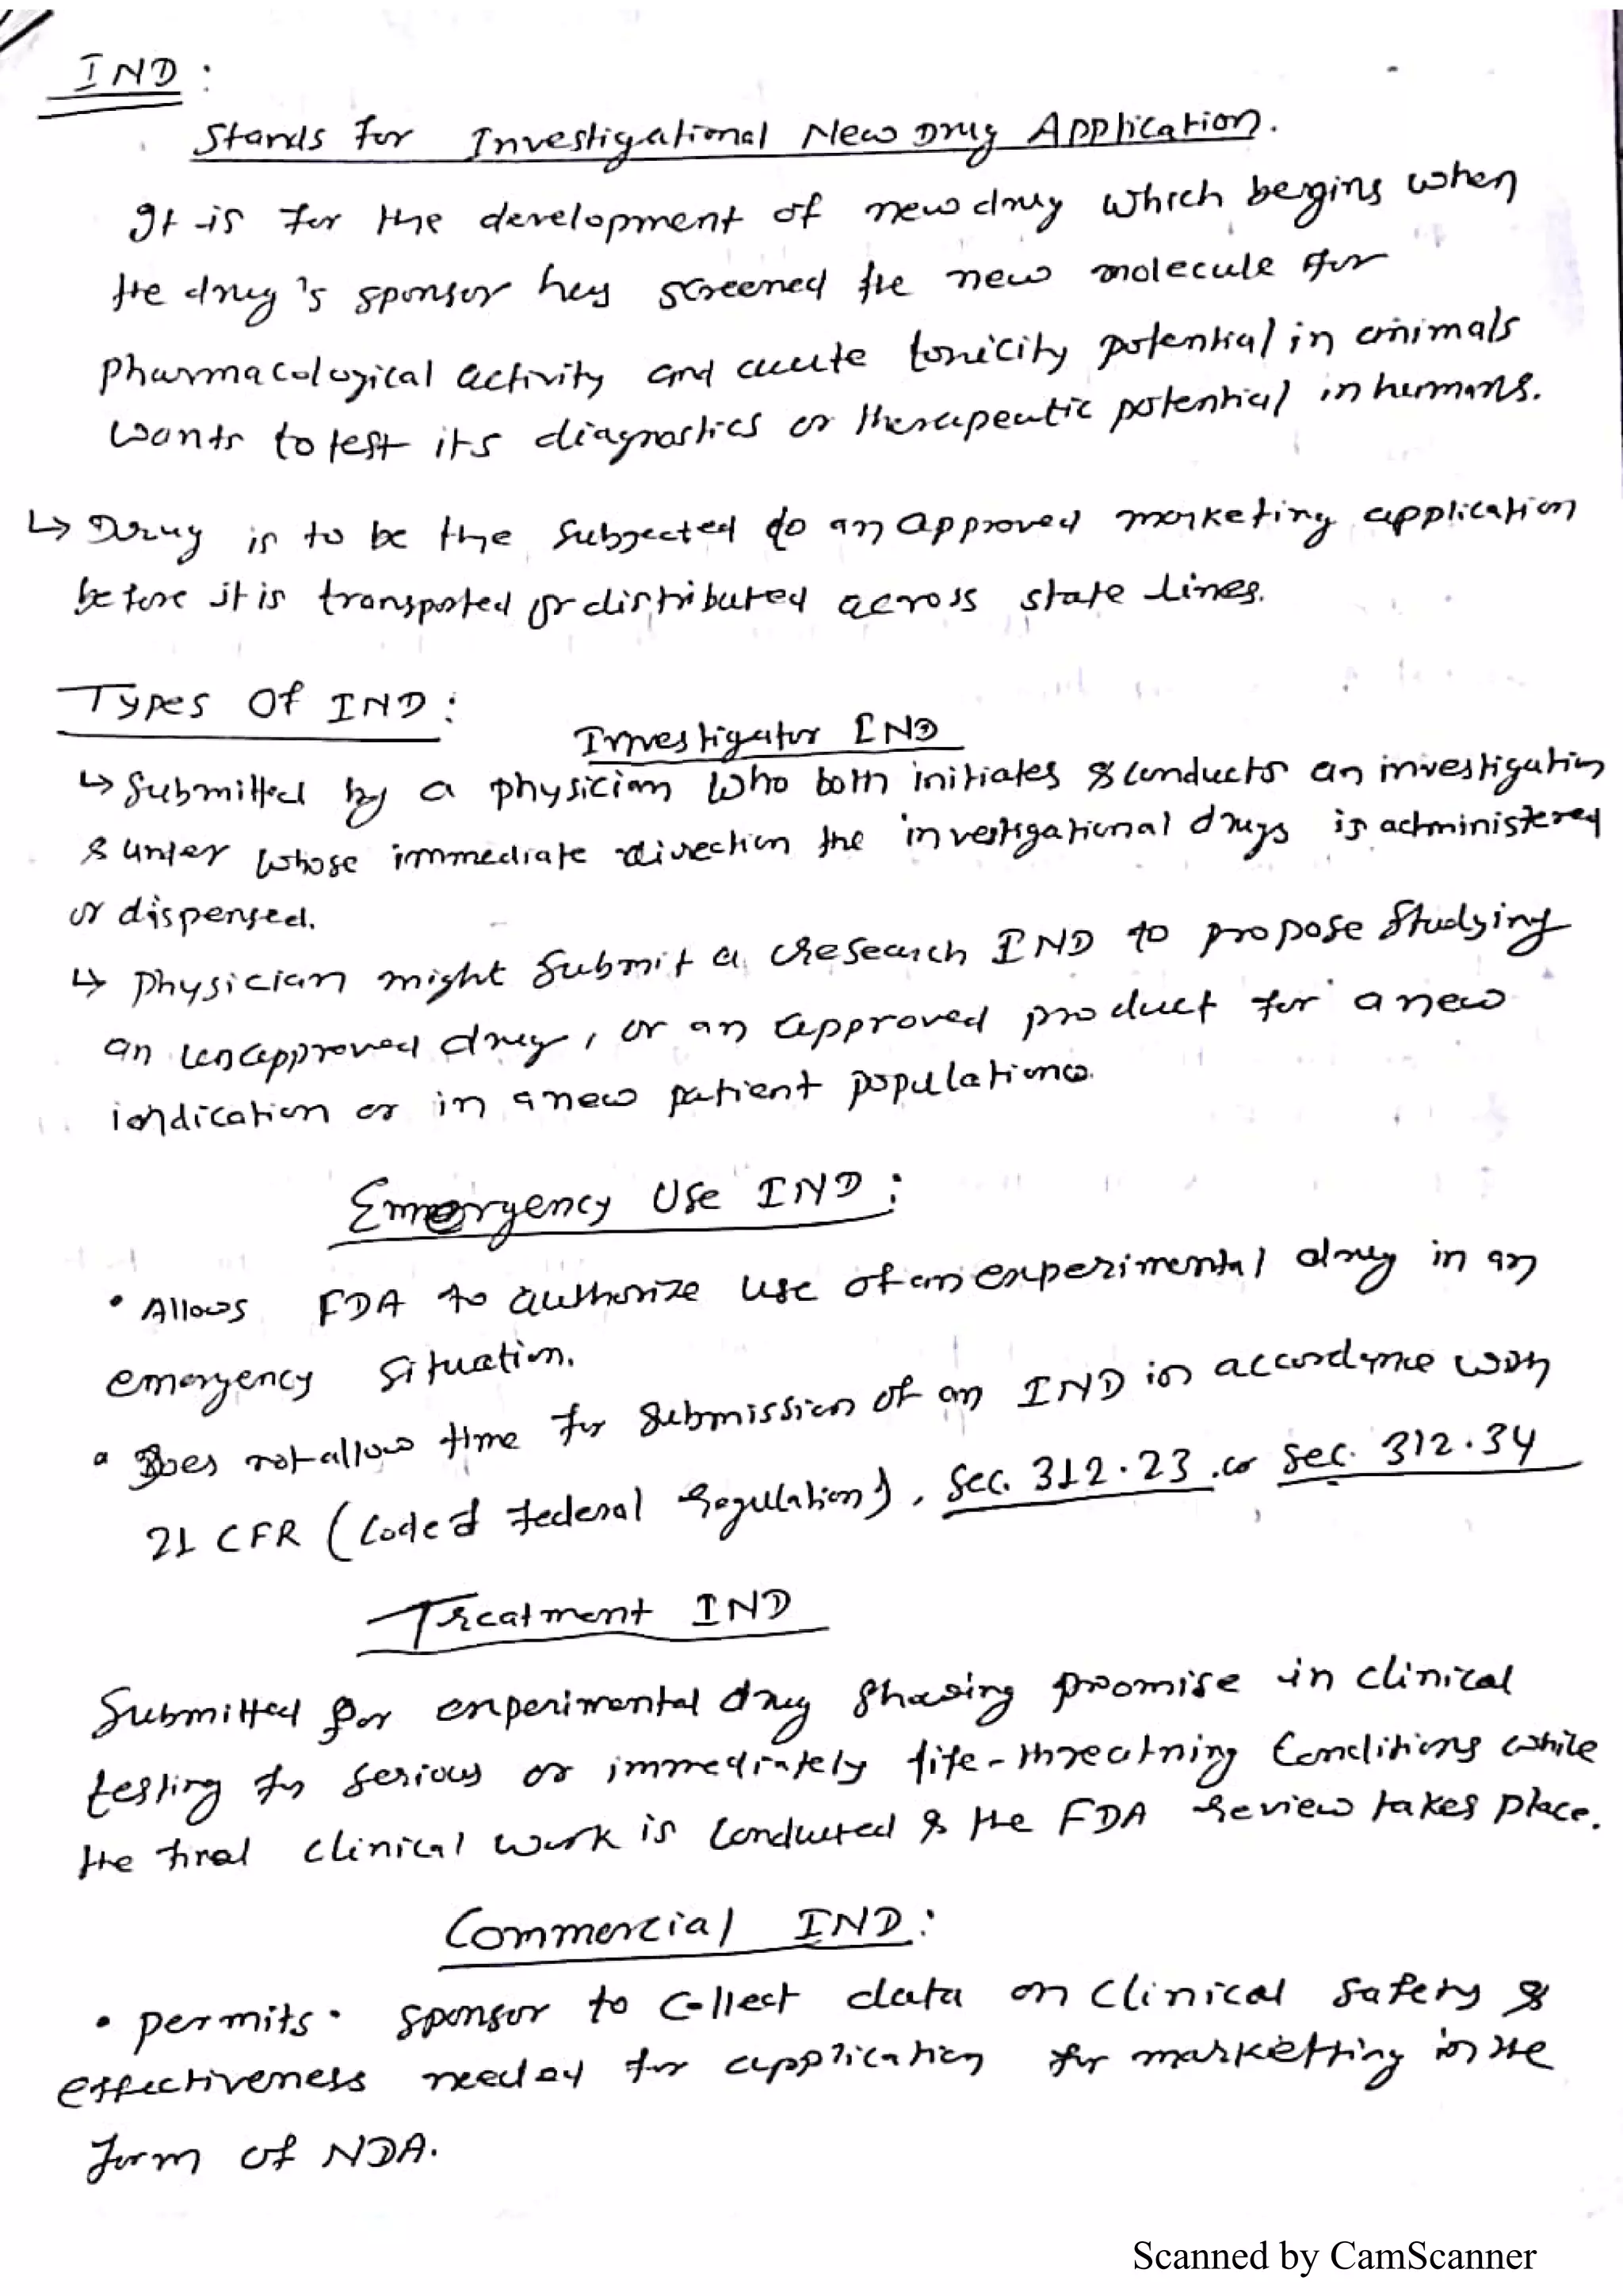 IND :
Stands for Investigational New Drug Application.
It is for the development of new drug which begins when
the drug's sponsor has screened the new molecule for
pharmacological activity and acute toxicity potential in animals
wants to test its diagnostics or therapeutic potential in humans.
↳ Drug is to be the subjected to an approved marketing application
before it is transported or distributed across state lines.
Types Of IND :
Investigator IND
↳ Submitted by a physician who both initiates & conducts an investigation
& under whose immediate direction the investigational drugs is administered
or dispensed.
↳ Physician might submit a research IND to propose studying
an unapproved drug, or an approved product for a new
indication or in a new patient populations.
Emergency Use IND :
• Allows FDA to authorize use of an experimental drug in an
emergency situation.
• Does not allow time for submission of an IND in accordance with
21 CFR (Code of Federal Regulation), Sec. 312.23 or Sec. 312.34
Treatment IND
Submitted for experimental drug showing promise in clinical
testing for serious or immediately life-threatning conditions while
the final clinical work is conducted & the FDA review takes place.
Commercial IND :
• permits • sponsor to collect data on clinical safety &
effectiveness needed for application for marketting in the
form of NDA.
Scanned by CamScanner